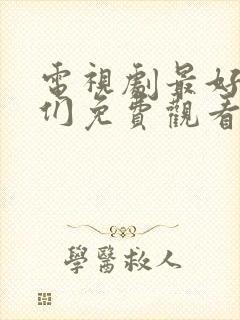 電視劇最好
们免費觀看
學醫救人